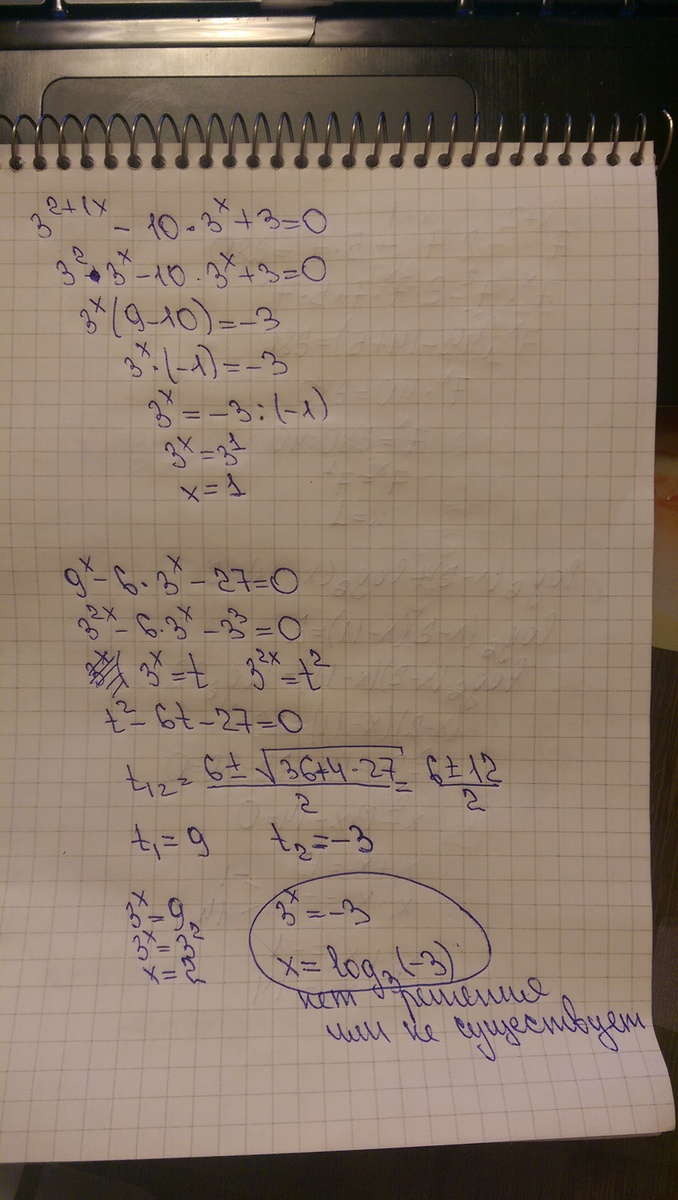 3^{2+1x} - 10 · 3^x + 3 = 0
3^2 · 3^x - 10 · 3^x + 3 = 0
3^x (9 - 10) = -3
3^x · (-1) = -3
3^x = -3 : (-1)
3^x = 3^1
x = 1
9^x - 6 · 3^x - 27 = 0
3^{2x} - 6 · 3^x - 3^3 = 0
3^x = t 3^{2x} = t^2
t^2 - 6t - 27 = 0
t_{12} = \frac{6 ± \sqrt{36 + 4 · 27}}{2} = \frac{6 ± 12}{2}
t_1 = 9 t_2 = -3
3^x = 9 3^x = -3
3^x = 3^2
x = 2 x = log_3 (-3)
нет решения
или не существует